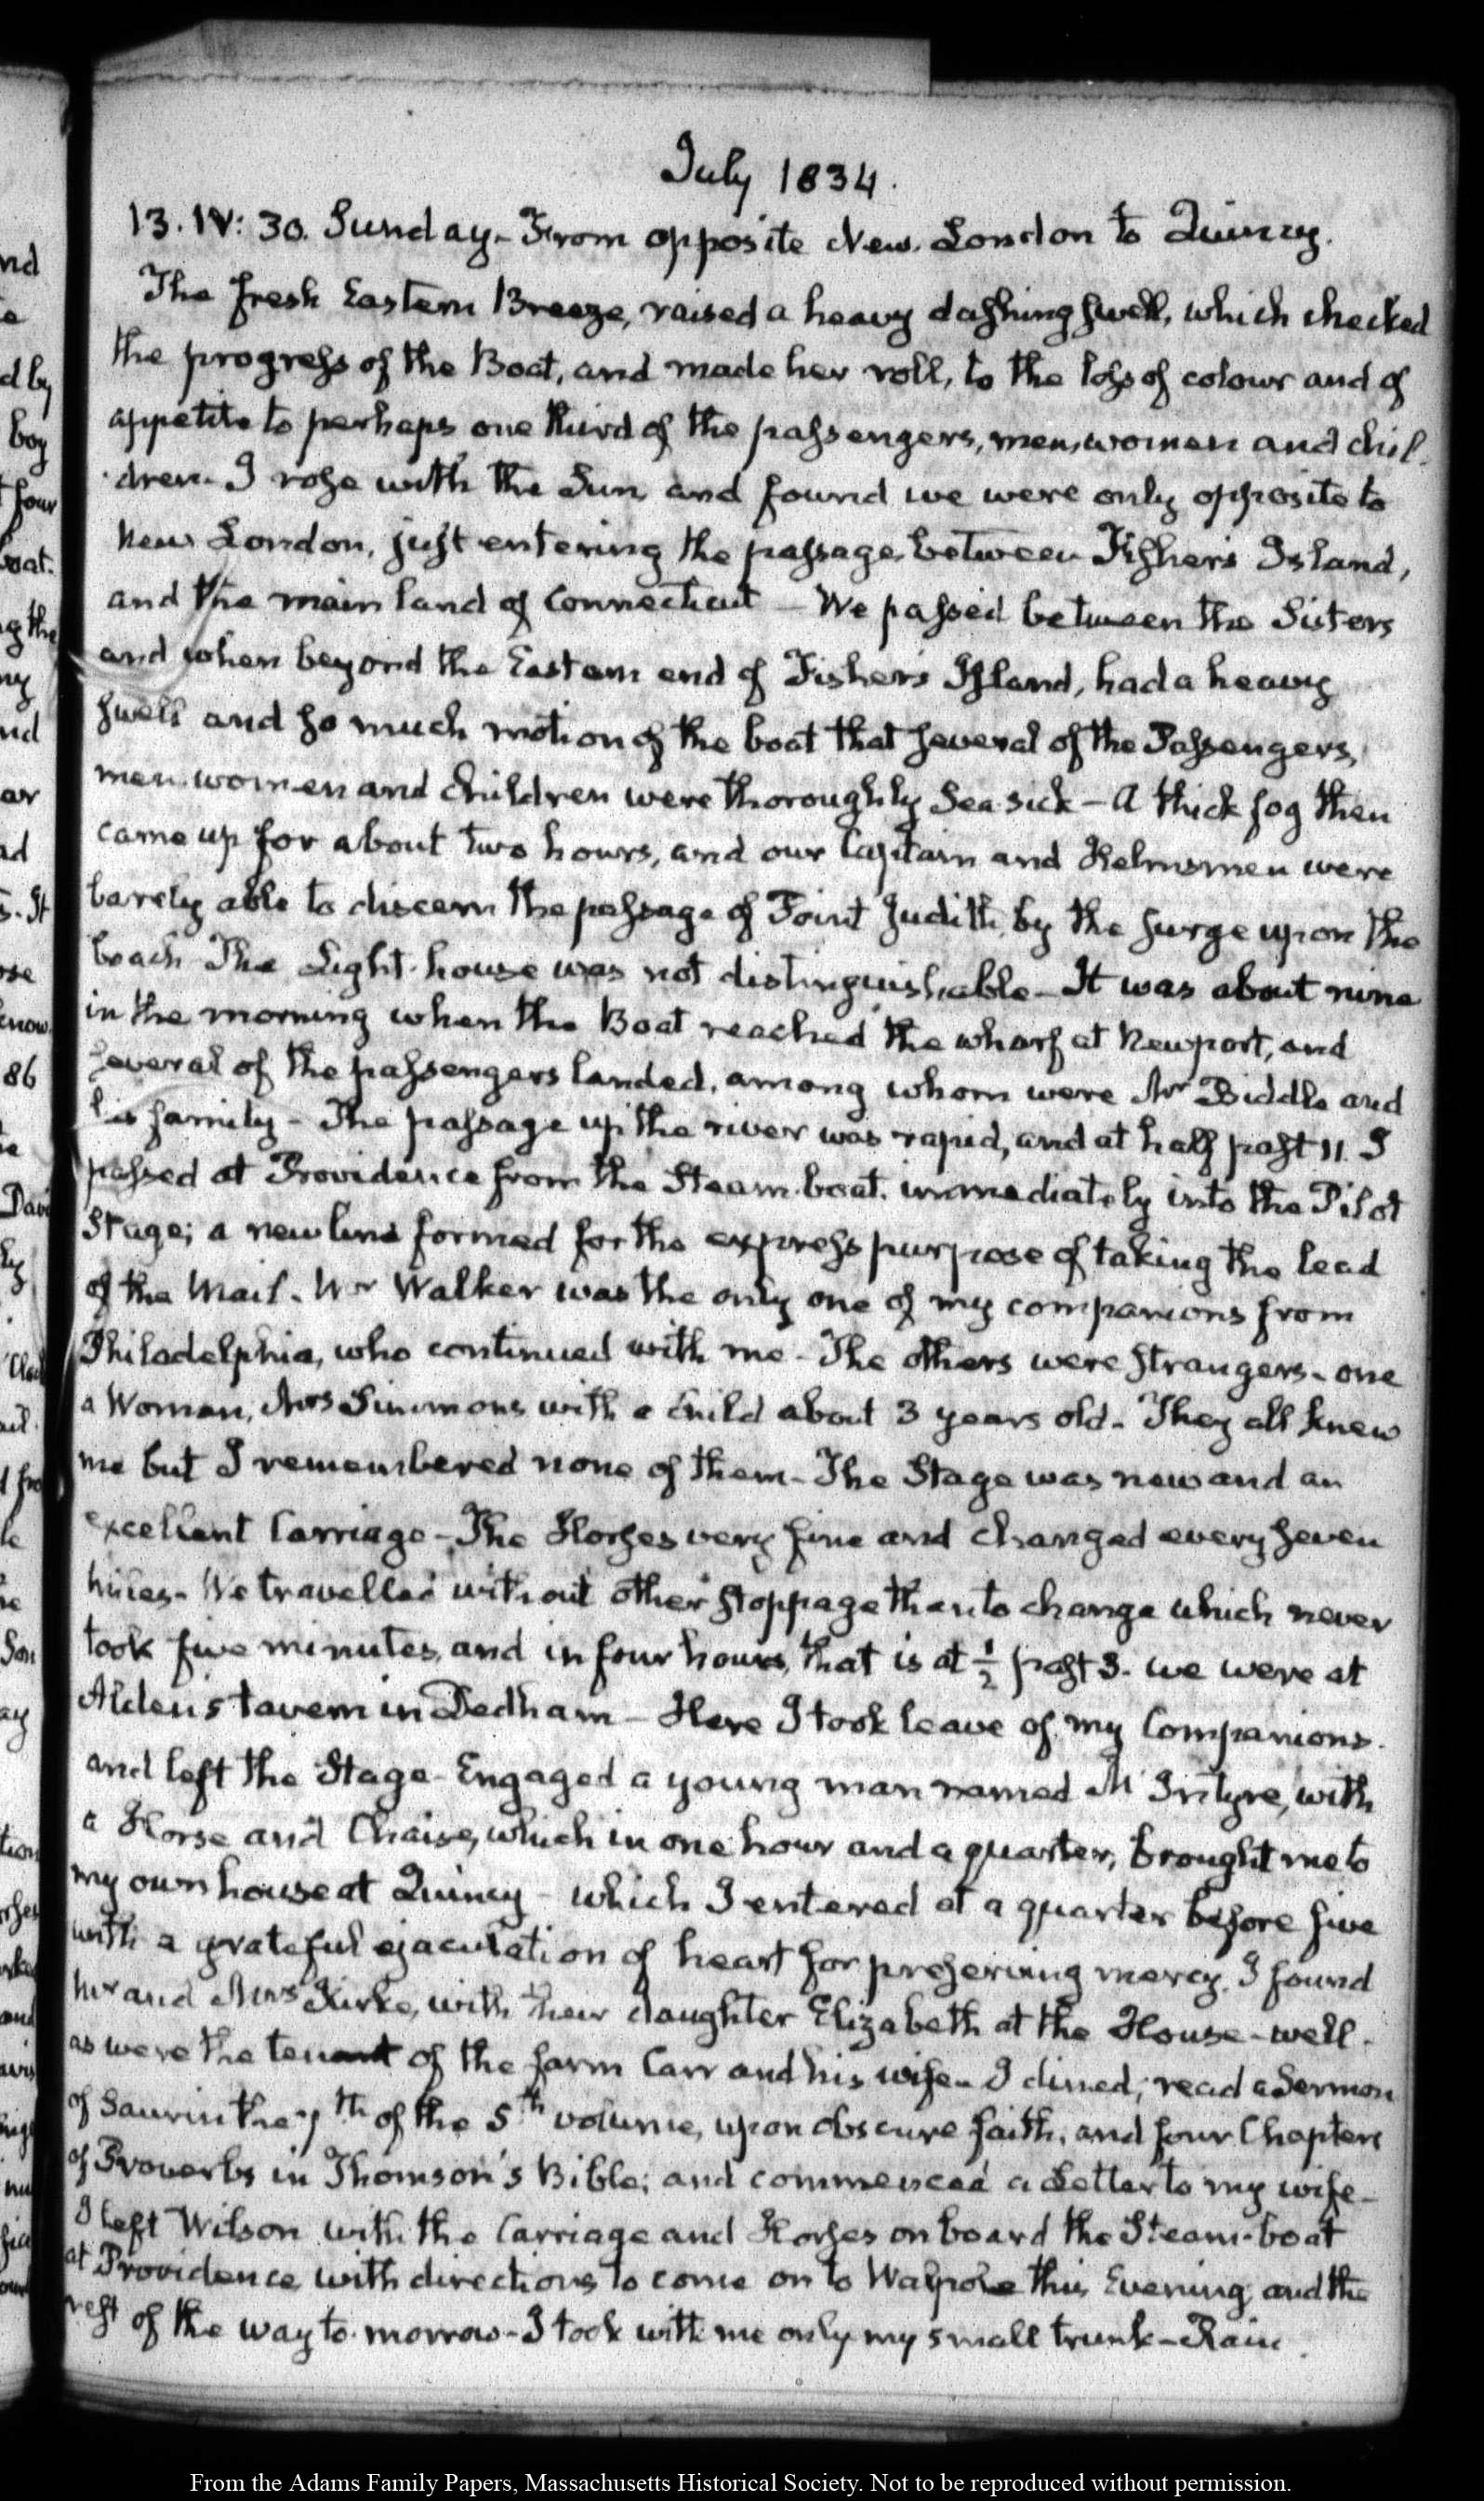 July 1834.
13. IV: 30. Sunday - From opposite New London to Quincy.
The fresh Eastern Breeze, raised a heavy dashing swell, which checked
the progress of the Boat, and made her roll, to the loss of colour and of
appetite to perhaps one third of the passengers, men, women and chil-
dren. I rose with the Sun, and found we were only opposite to
New London, just entering the passage between Fisher's Island,
and the main land of Connecticut - We passed between the Sisters
and when beyond the Eastern end of Fisher's Island, had a heavy
swell and so much motion of the boat that several of the Passengers,
men women and children were thoroughly Sea sick - A thick fog then
came up for about two hours, and our Captain and Helmsmen were
barely able to discern the passage of Point Judith, by the surge upon the
beach The Light-house was not distinguishable - It was about nine
in the morning when the Boat reached the wharf at Newport, and
several of the passengers landed, among whom were Mr Biddle and
his family - The passage up the river was rapid, and at half past 11. I
passed at Providence from the Steam-boat, immediately into the Pilot
Stage; a new line formed for the express purpose of taking the lead
of the Mail. Mr Walker was the only one of my companions from
Philadelphia, who continued with me - The others were strangers - one
a Woman, Mrs Simmons with a Child about 3 years old - They all knew
me but I remembered none of them - The Stage was new and an
excellent Carriage - The Horses very fine and changed every seven
miles - We travelled without other stoppage than to change which never
took five minutes, and in four hours, that is at ½ past 3. we were at
Alden's tavern in Dedham - Here I took leave of my Companions.
and left the Stage - Engaged a young man named McIntyre, with
a Horse and Chaise, which in one hour and a quarter, brought me to
my own house at Quincy - which I entered at a quarter before five
with a grateful ejaculation of heart for preserving mercy. I found
Mr and Mrs Kirke, with their daughter Elizabeth at the House - well.
as were the tenant of the farm Carr and his wife - I dined; read a Sermon
of Saurin the 7th of the 5th volume, upon obscure faith, and four Chapters
of Proverbs in Thomson's Bible; and commenced a Letter to my wife -
I left Wilson with the Carriage and Horses on board the Steam-boat
at Providence with directions to come on to Walpole this Evening and the
rest of the way to-morrow - I took with me only my small trunk - Rain.
nd
e
d by
boy
four
boat.
g the
ny
nd
ar
ad
s. It
ose
know
86
Davi
Son
ay
tion
and
From the Adams Family Papers, Massachusetts Historical Society. Not to be reproduced without permission.